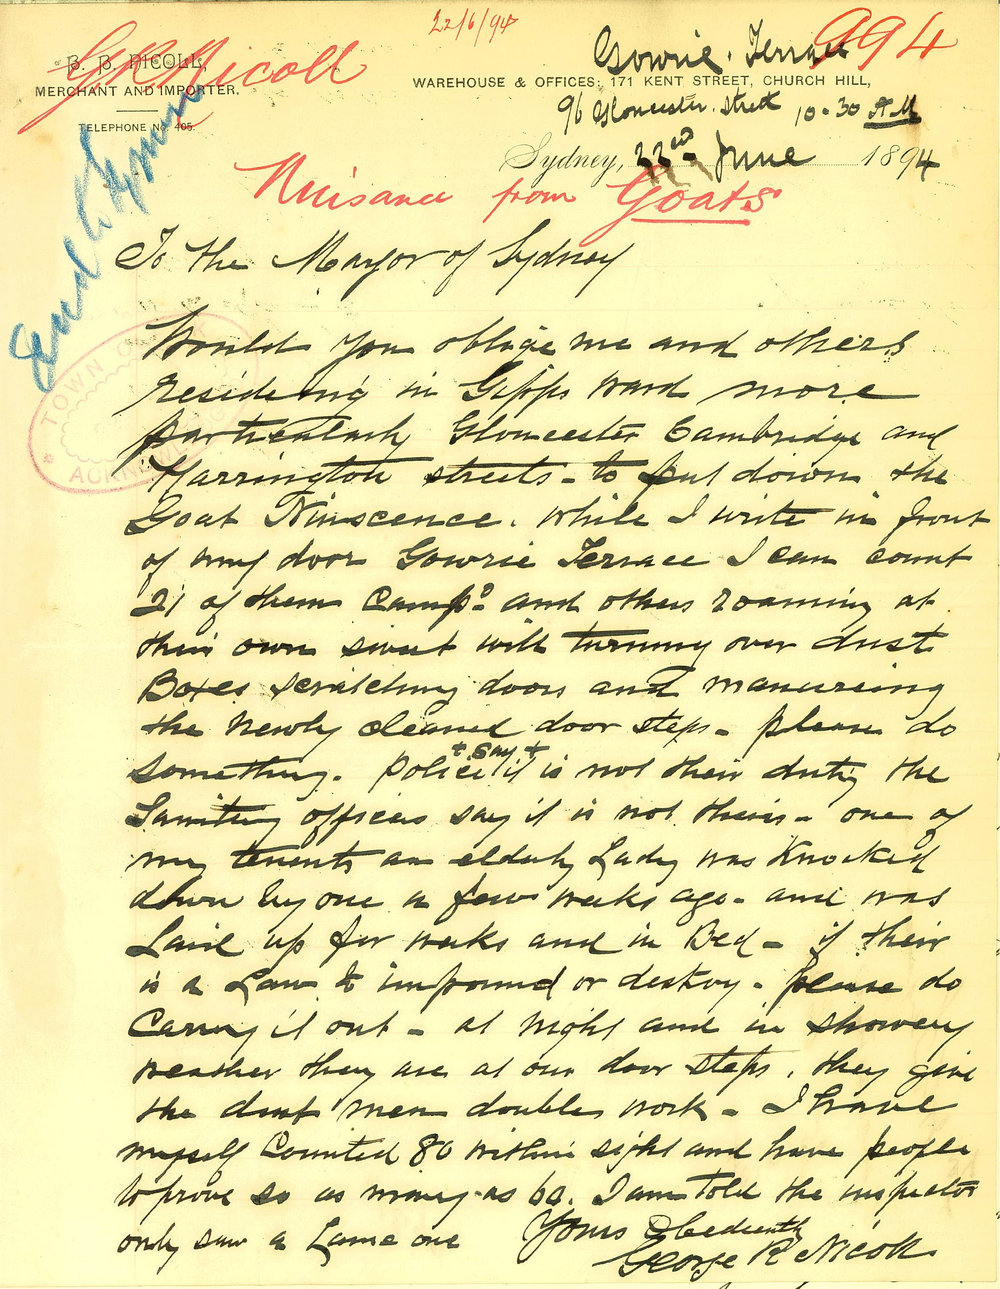 22/6/94
994
G R Nicoll
B. B. NICOLL,
MERCHANT AND IMPORTER.
TELEPHONE No. 405.
Gowrie Terrace
WAREHOUSE & OFFICES: 171 KENT STREET, CHURCH HILL,
96 Gloucester Street 10-30 A M
Sydney, 22nd June 1894
Nuisance from Goats
TOWN CLERK
ACKNOWLEDGED
To the Mayor of Sydney
Would you oblige me and others
residing in Gipps Ward more
particularly Gloucester Cambridge and
Harrington streets - to put down the
Goat Ninscence. While I write in front
of my door Gowrie Terrace I can count
21 of them Campd - and others roaming at
their own sweet will turning over dust
Boxes scratching doors and manureing
the newly cleaned door steps - please do
something. police + say + it is not their duty the
Sanitary officers say it is not theirs - one of
my tenents an elderly Lady was Knocked
down by one a few weeks ago - and was
Laid up for weeks and in Bed - if their
is a Law to impound or destroy - please do
Carry it out - at night and in showery
weather they are at our door steps, they give
the dust men double work - I have
myself Counted 80 within sight and have people
to prove so as many as 60. I am told the inspector
only saw a Lame one
Yours Obediently
George R Nicoll